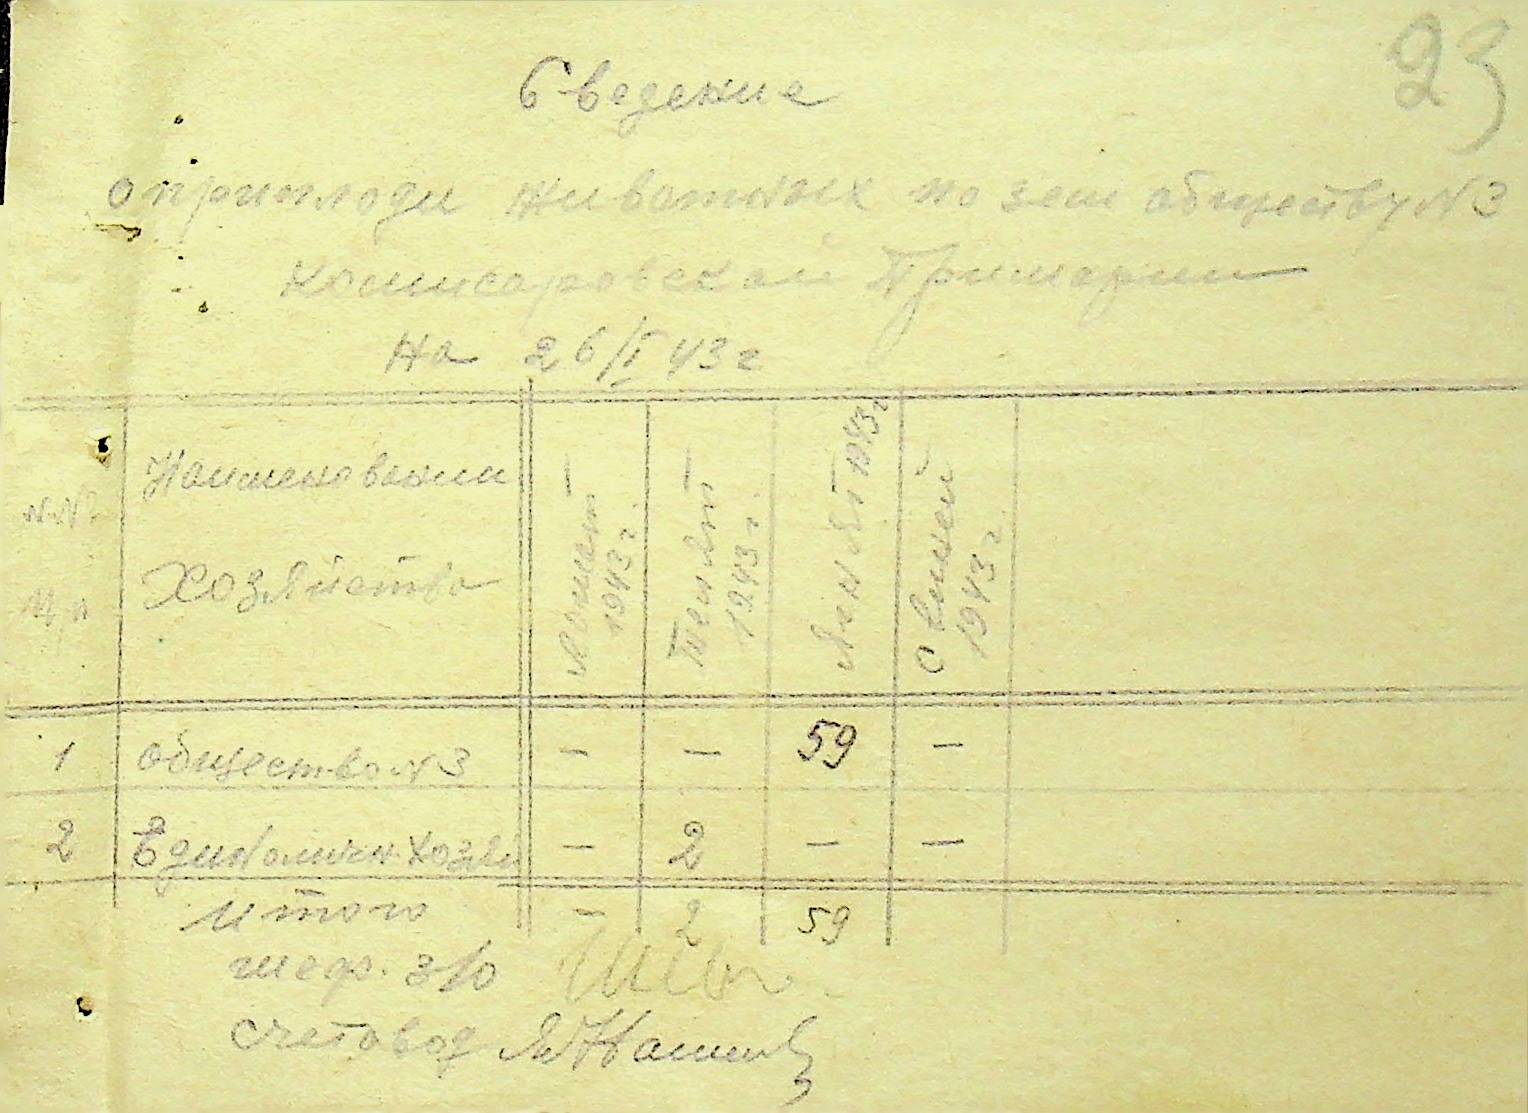 23
Сведение
о приплоди животных по зем обществу N 3
Комисаровской Примарии
На 26/I 43 г
N.N° п/п
Наименовании Хозяйство
Лошат 1943 г.
Телят 1943 г.
Ягнят 1943 г
Свиней 1943 г.
1 общество N 3 – – 59 –
2 Единоличн. Хозяй – 2 – –
Итого – 2 59
шеф. з/о
счетовод